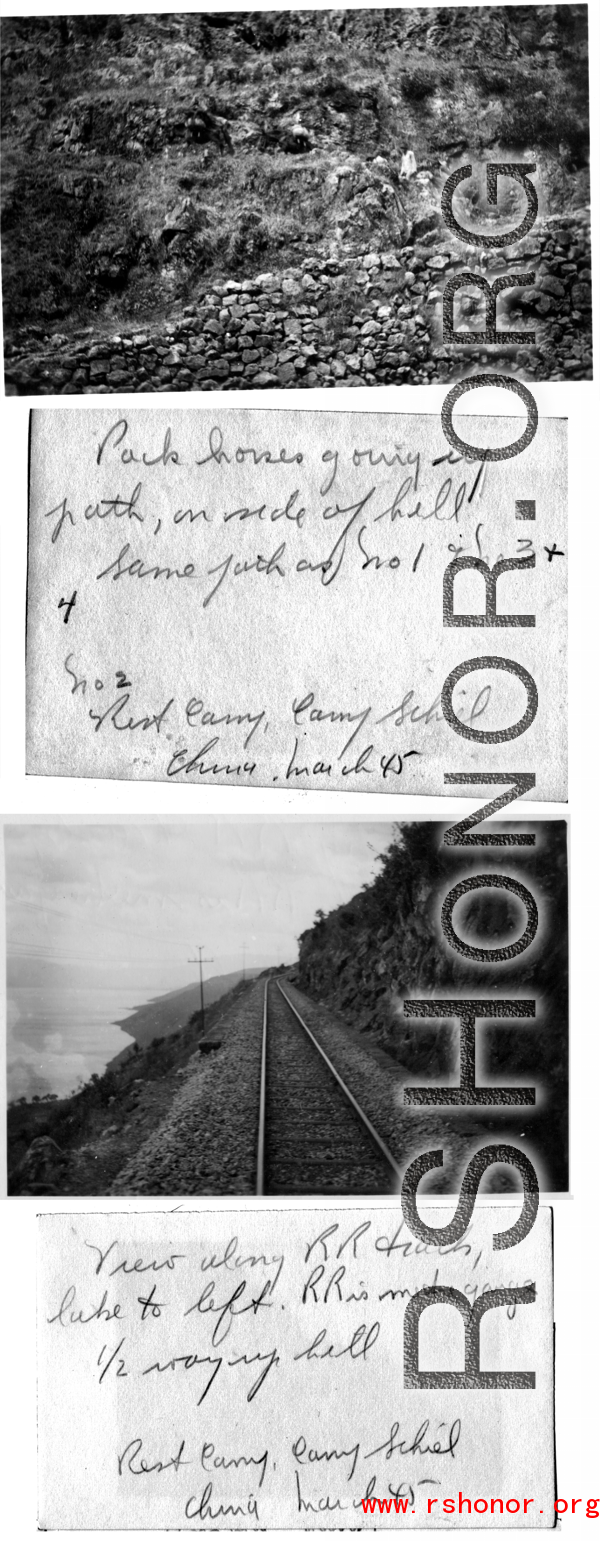 Pack horses going up
path, on side of hill
same path as No 1 & No 3 +
4
No 2
Rest Camp, Camp Schiel
China. March 45
View along RR track,
lake to left. RR is
1/2 way up hill
Rest Camp, Camp Schiel
China March 45
RSHONOR.ORG
www.rshonor.org